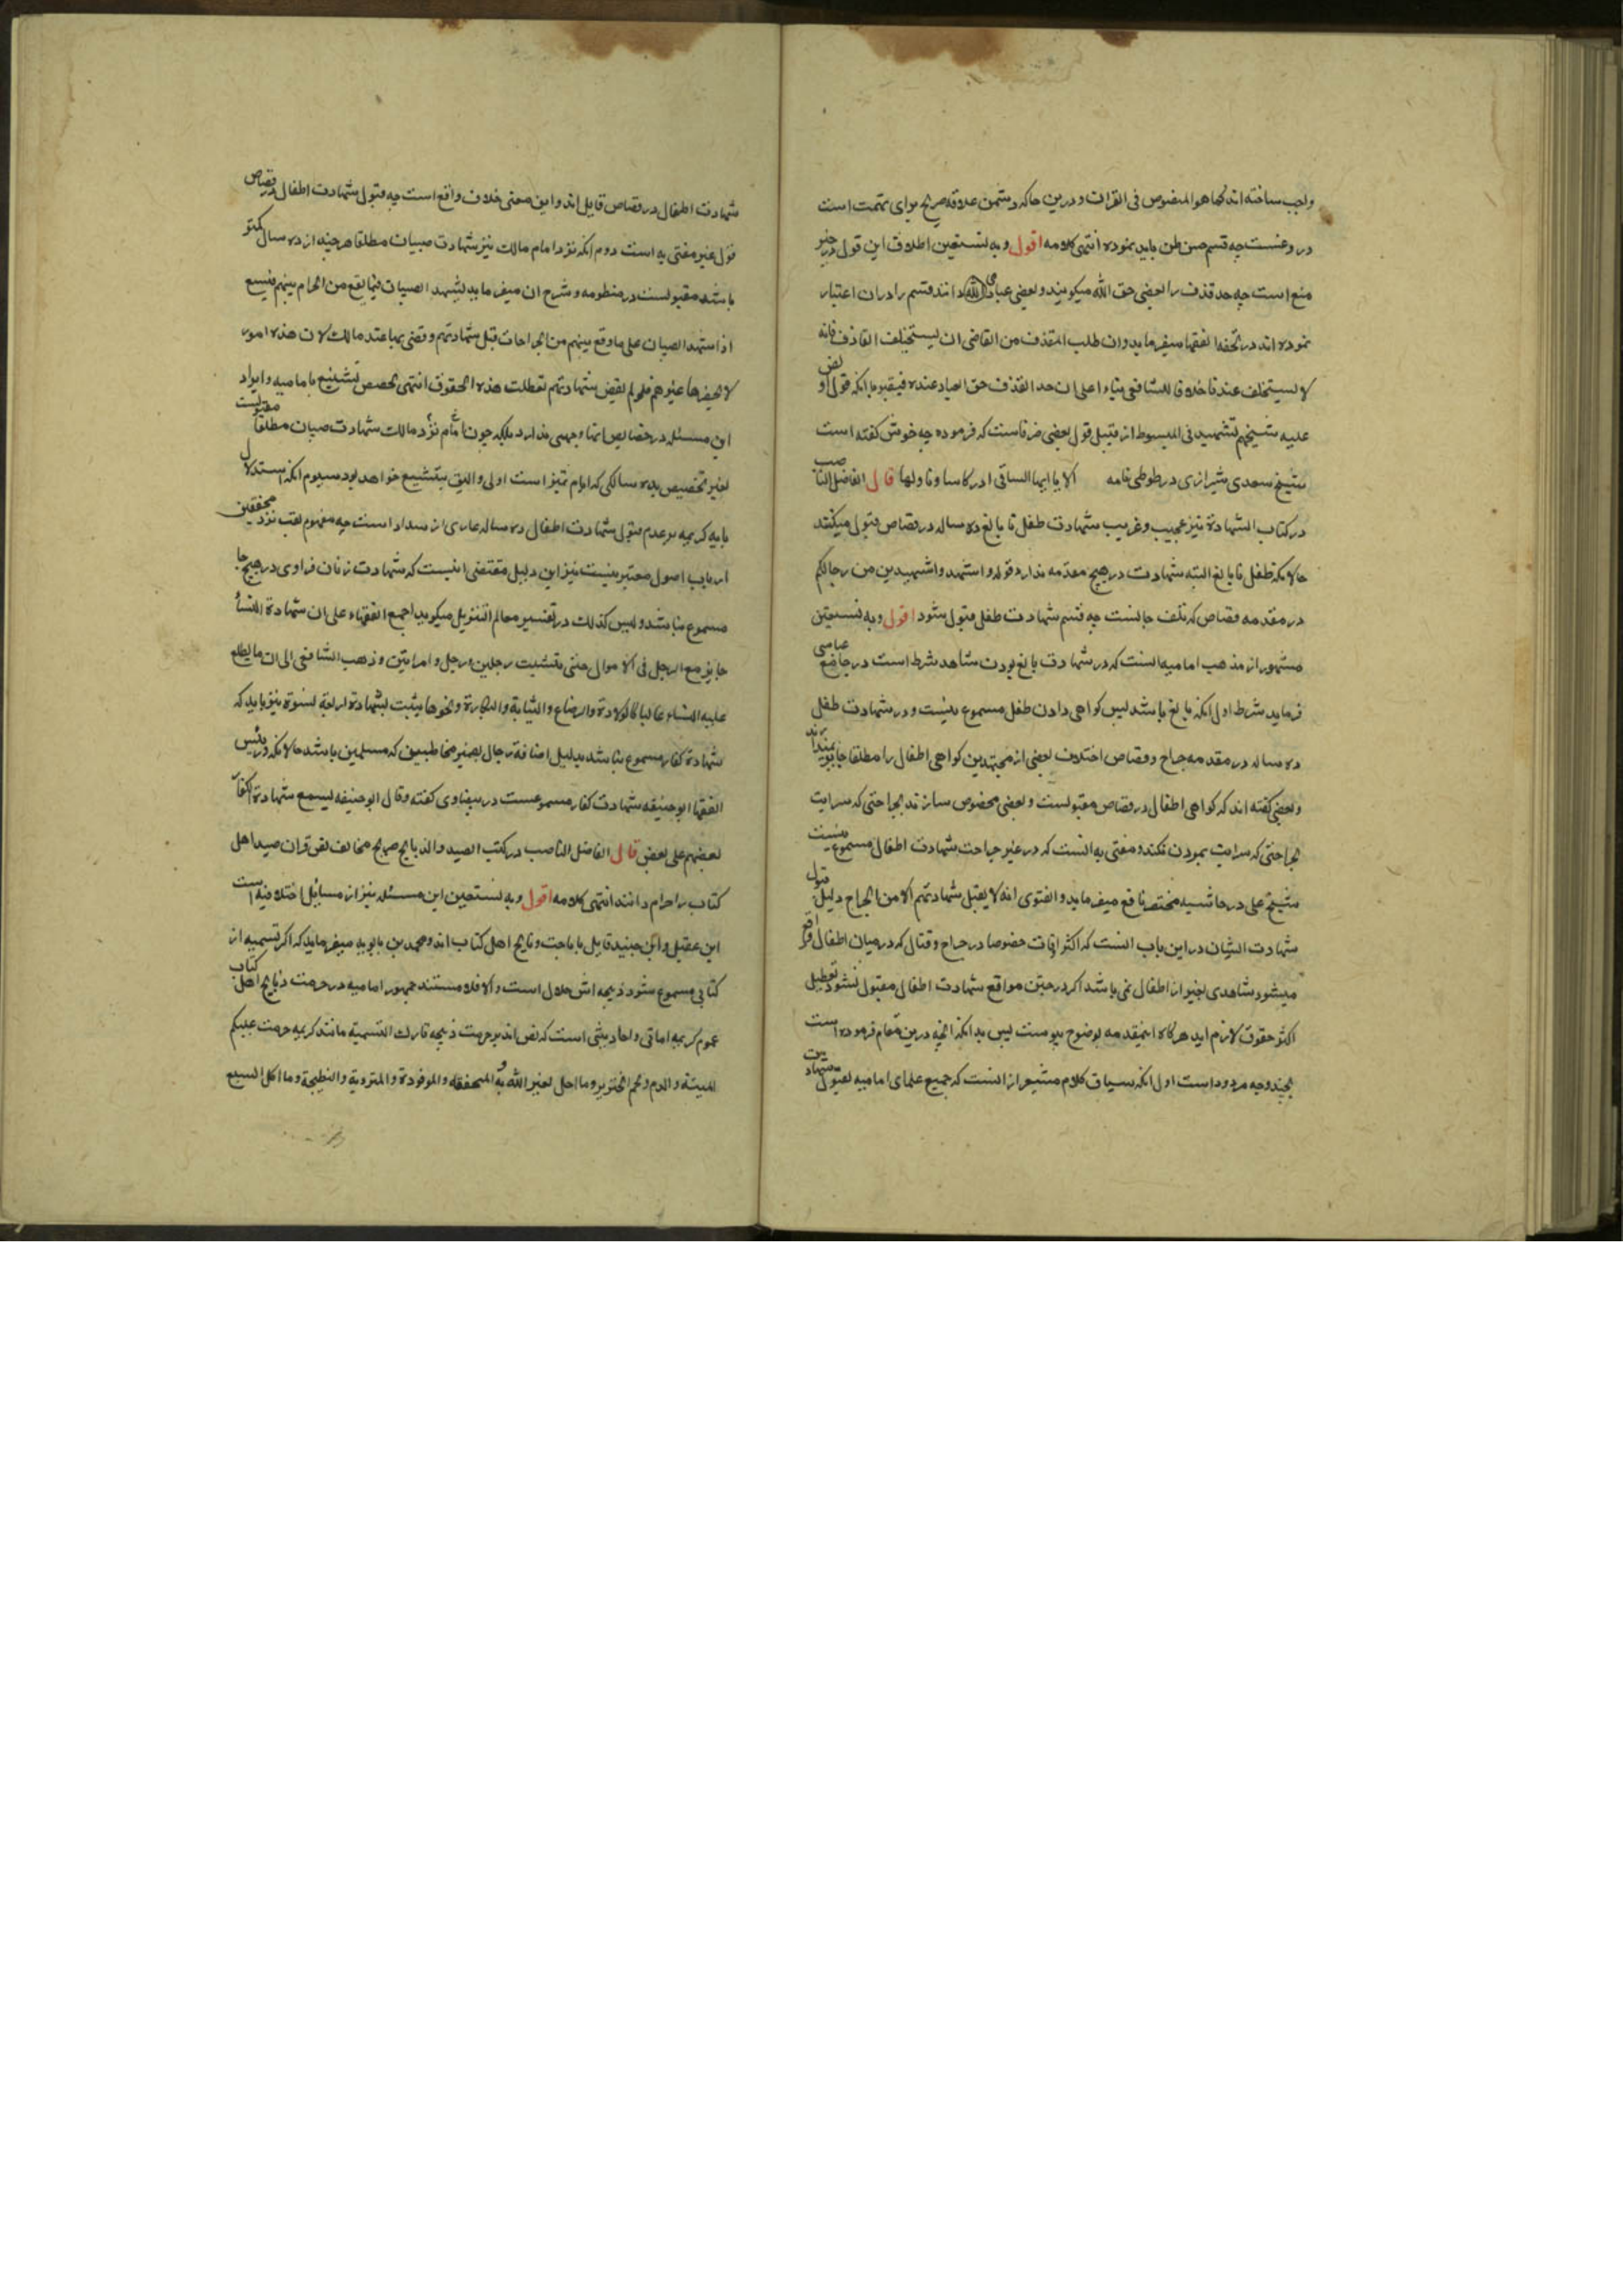 واجب ساخته اند کما هو المنصوص فی القران و درین جا که دشمن علاقه صریح برای تهمت است
دروغست چه قسم حسن ظن باید نموده انتهی کلامه اقول و به نستعین اطلاق این قول در حیز
منع است چه حد قذف را بعضی حق الله میکویند و بعضی دانند قسم را دران اعتبار
نموده اند در تحفة الفقها میفرماید وان طلب المقذف من القاضی ان یستحلف القاذف فانه
لا یستحلف عندنا خلافا للشافعی بناء اعلی ان حد القذف حق العباد عنده فیقبل با انکه قول او نص
علیه شیخهم الشهید فی المبسوط از قبیل قول بعضی ظرفاست که فرموده چه خوش کفته است
شیخ سعدی شیرازی در طوطی نامه الا یا ایها الساقی ادر کاسا و ناولها قال الفاضل الناصب
در کتاب الشهادة نیز عجیب و غریب شهادت طفل نا بالغ ده ساله در قصاص قبول میکنند
حالانکه طفل نا بالغ البته شهادت در هیچ مقدمه ندارد قوله واستشهدوا شهیدین من رجالکم
در مقدمه قصاص که تلف جانست چه قسم شهادت طفل قبول شود اقول و به نستعین
مشهور از مذهب امامیه انست که در شهادت بالغ بودن شاهد شرط است در جامع عباسی
فرماید شرط اول انکه بالغ باشد پس کواهی دادن طفل مسموع نیست و در شهادت طفل
ده ساله در مقدمه جراح و قصاص اختلاف بعضی از مجتهدین کواهی اطفال را مطلقا جایز
و بعضی کفته اند که کواهی اطفال در قصاص مقبولست و بعضی مخصوص سازند بجراحتی که سرایت
بجراحتی که سرایت بمردن نکند و مفتی به انست که در غیر جراحت شهادت اطفال مسموع نیست
شیخ علی در حاشیه مختصر نافع میفرماید و الفتوی انه لا یقبل شهادتهم الا من الجراح دلیل قبول
شهادت ایشان در این باب انست که اکثر اوقات خصوصا در جراح و قتال که در میان اطفال واقع
میشود شاهدی بغیر از اطفال نمی باشد اکر در چنین مواقع شهادت اطفال مقبول نشود تعطیل
اکثر حقوق لازم اید هرکاه اینمقدمه بوضوح پیوست پس بدانکه انچه درین مقام فرموده است
بچند وجه مردود است اول انکه سیاق کلام مشعر از انست که جمیع علمای امامیه بقبول
شهادت اطفال در قصاص قایل اند و این معنی خلاف واقع است چه قبول شهادت اطفال در قصاص
قول غیر مفتی به است دوم انکه نزد امام مالک نیز شهادت صبیان مطلقا هر چند از ده سال کمتر
باشد مقبولست در منظومه و شرح ان میفرماید لشهد الصبیان فیما یقع من الجرام بینهم فیسع
اذا شهد الصبیان علی ما وقع بینهم من الجراحات قبل شهادتهم و قضی بها عند مالک لان هذه امور
لا یحضرها غیرهم فلو لم یقبل شهادتهم لتعطلت هذه الحقوق انتهی تخصیص تشنیع بامامیه و ایراد
این مسئله در خصایص انها وجهی ندارد بلکه چون امام نزد مالک شهادت صبیان مطلقا مقبولست
بغیر تخصیص بده سالکی که ایام تمیز است اولی و الیق بتشنیع خواهد بود سیوم انکه استدلال
بایه کریمه بر عدم قبول شهادت اطفال ده ساله عاری از سداد است چه مفهوم لقب نزد محققین
ارباب اصول معتبر نیست نیز این دلیل مقتضی انیست که شهادت زنان فرادی در هیچ جا
مسموع نباشد و لیس کذلک در تفسیر معالم التنزیل میکوید اجمع الفقهاء علی ان شهادة النساء
جایز مع الرجل فی الاموال حتی یثبت برجلین و رجل و امراتین و ذهب الشافعی الی ان ما یطلع
علیه النساء غالبا کالولادة والرضاع والثیابة والبکارة و نحوها یثبت بشهادة اربعة نسوة نیز باید که
شهادة کفار مسموع نباشد بدلیل اضافة رجال بضمیر مخاطبین که مسلمین باشد حالانکه نزد رئیس
الفقها ابو حنیفه شهادت کفار مسموعست در بیضاوی کفته وقال ابو حنیفه یسمع شهادة الکفار
بعضهم علی بعض قال الفاضل الناصب در کتب الصید و الذبایح صریح مخالف نص قران صید اهل
کتاب را حرام دانند انتهی کلامه اقول و به نستعین این مسئله نیز از مسائل اختلافیه است
ابن عقیل و ابن جنید قایل باباحت ذبایح اهل کتاب اند و محمد بن بابویه میفرماید که اکر تسمیه از
کتابی مسموع شود ذبیحه اش حلال است و الا فلا مستند جمهور امامیه در حرمت ذبایح اهل کتاب
عموم کریمه اماتی و احادیثی است که نص اند بر حرمت ذبیحه تارک التسمیة مانند کریمه حرمت علیکم
المیتة والدم ولحم الخنزیر وما اهل لغیر الله به والمنخنقة والموقوذة والمتردیة والنطیحة وما اکل السبع